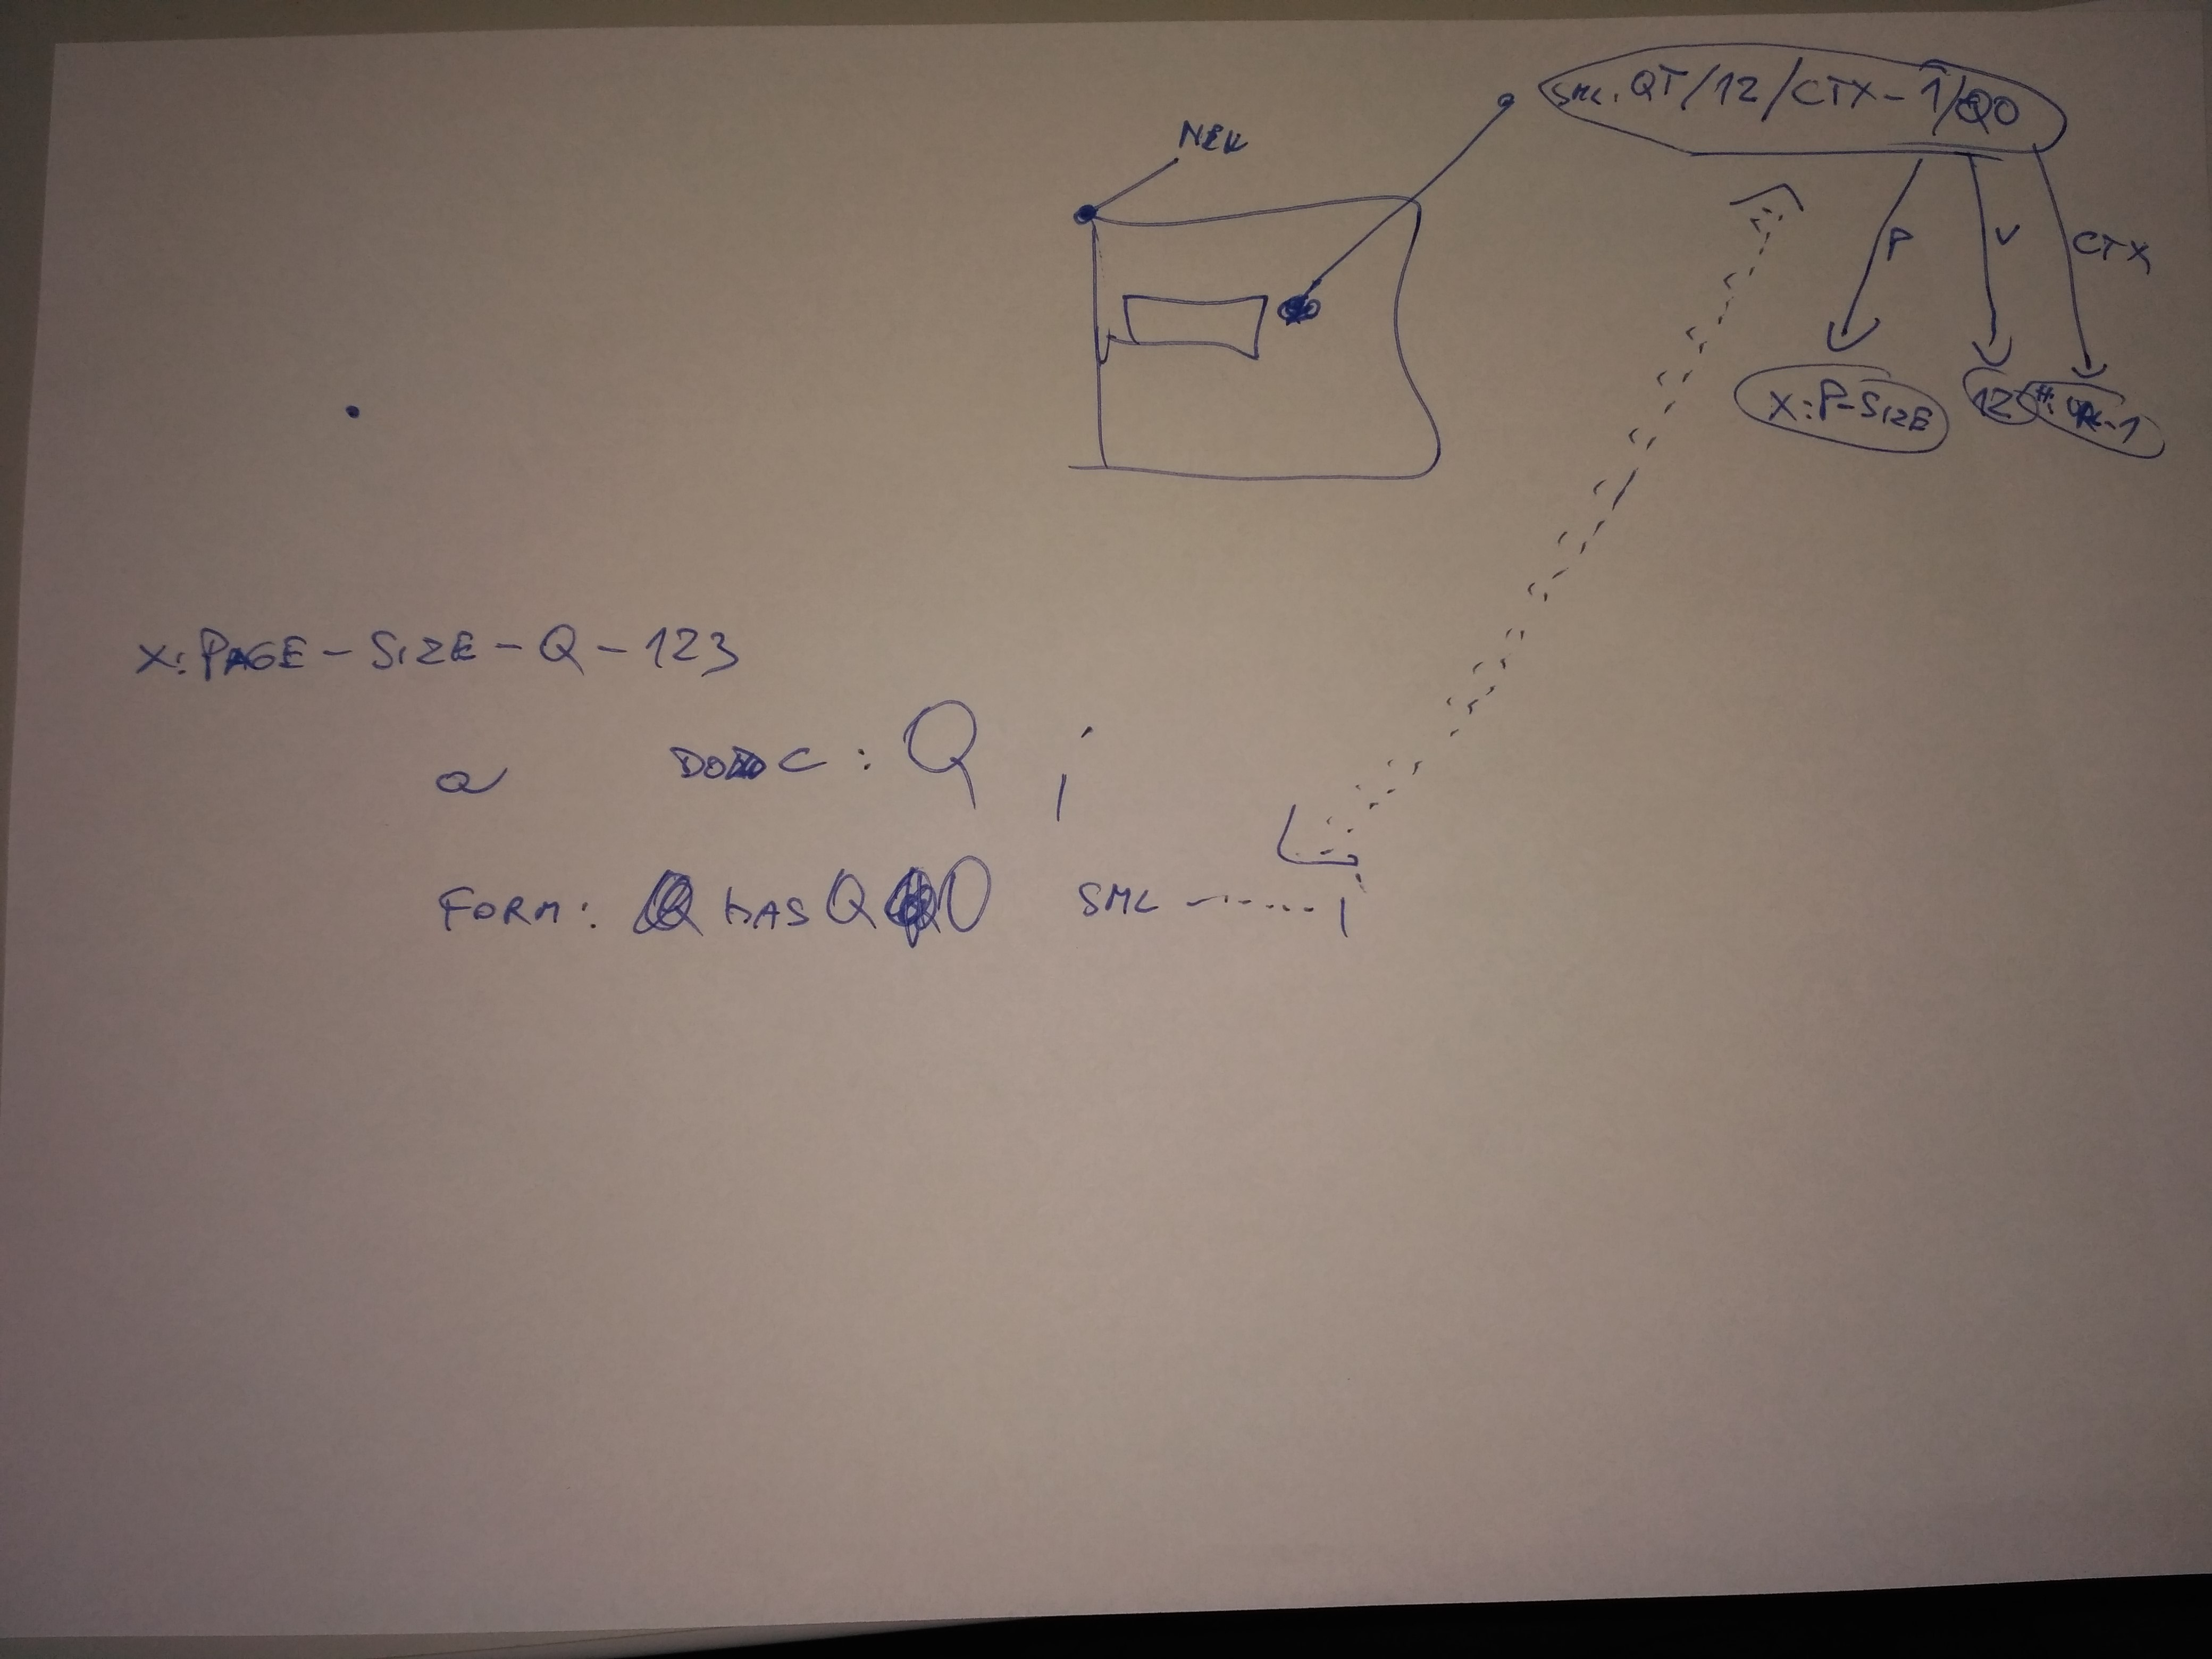 SML: QT/12/CTX-1/QO
NEW
P
V
CTX
X:P-SIZE
12
X:PAGE-SIZE-Q-123
a DODC : Q ;
FORM: HAS Q O SML ------;